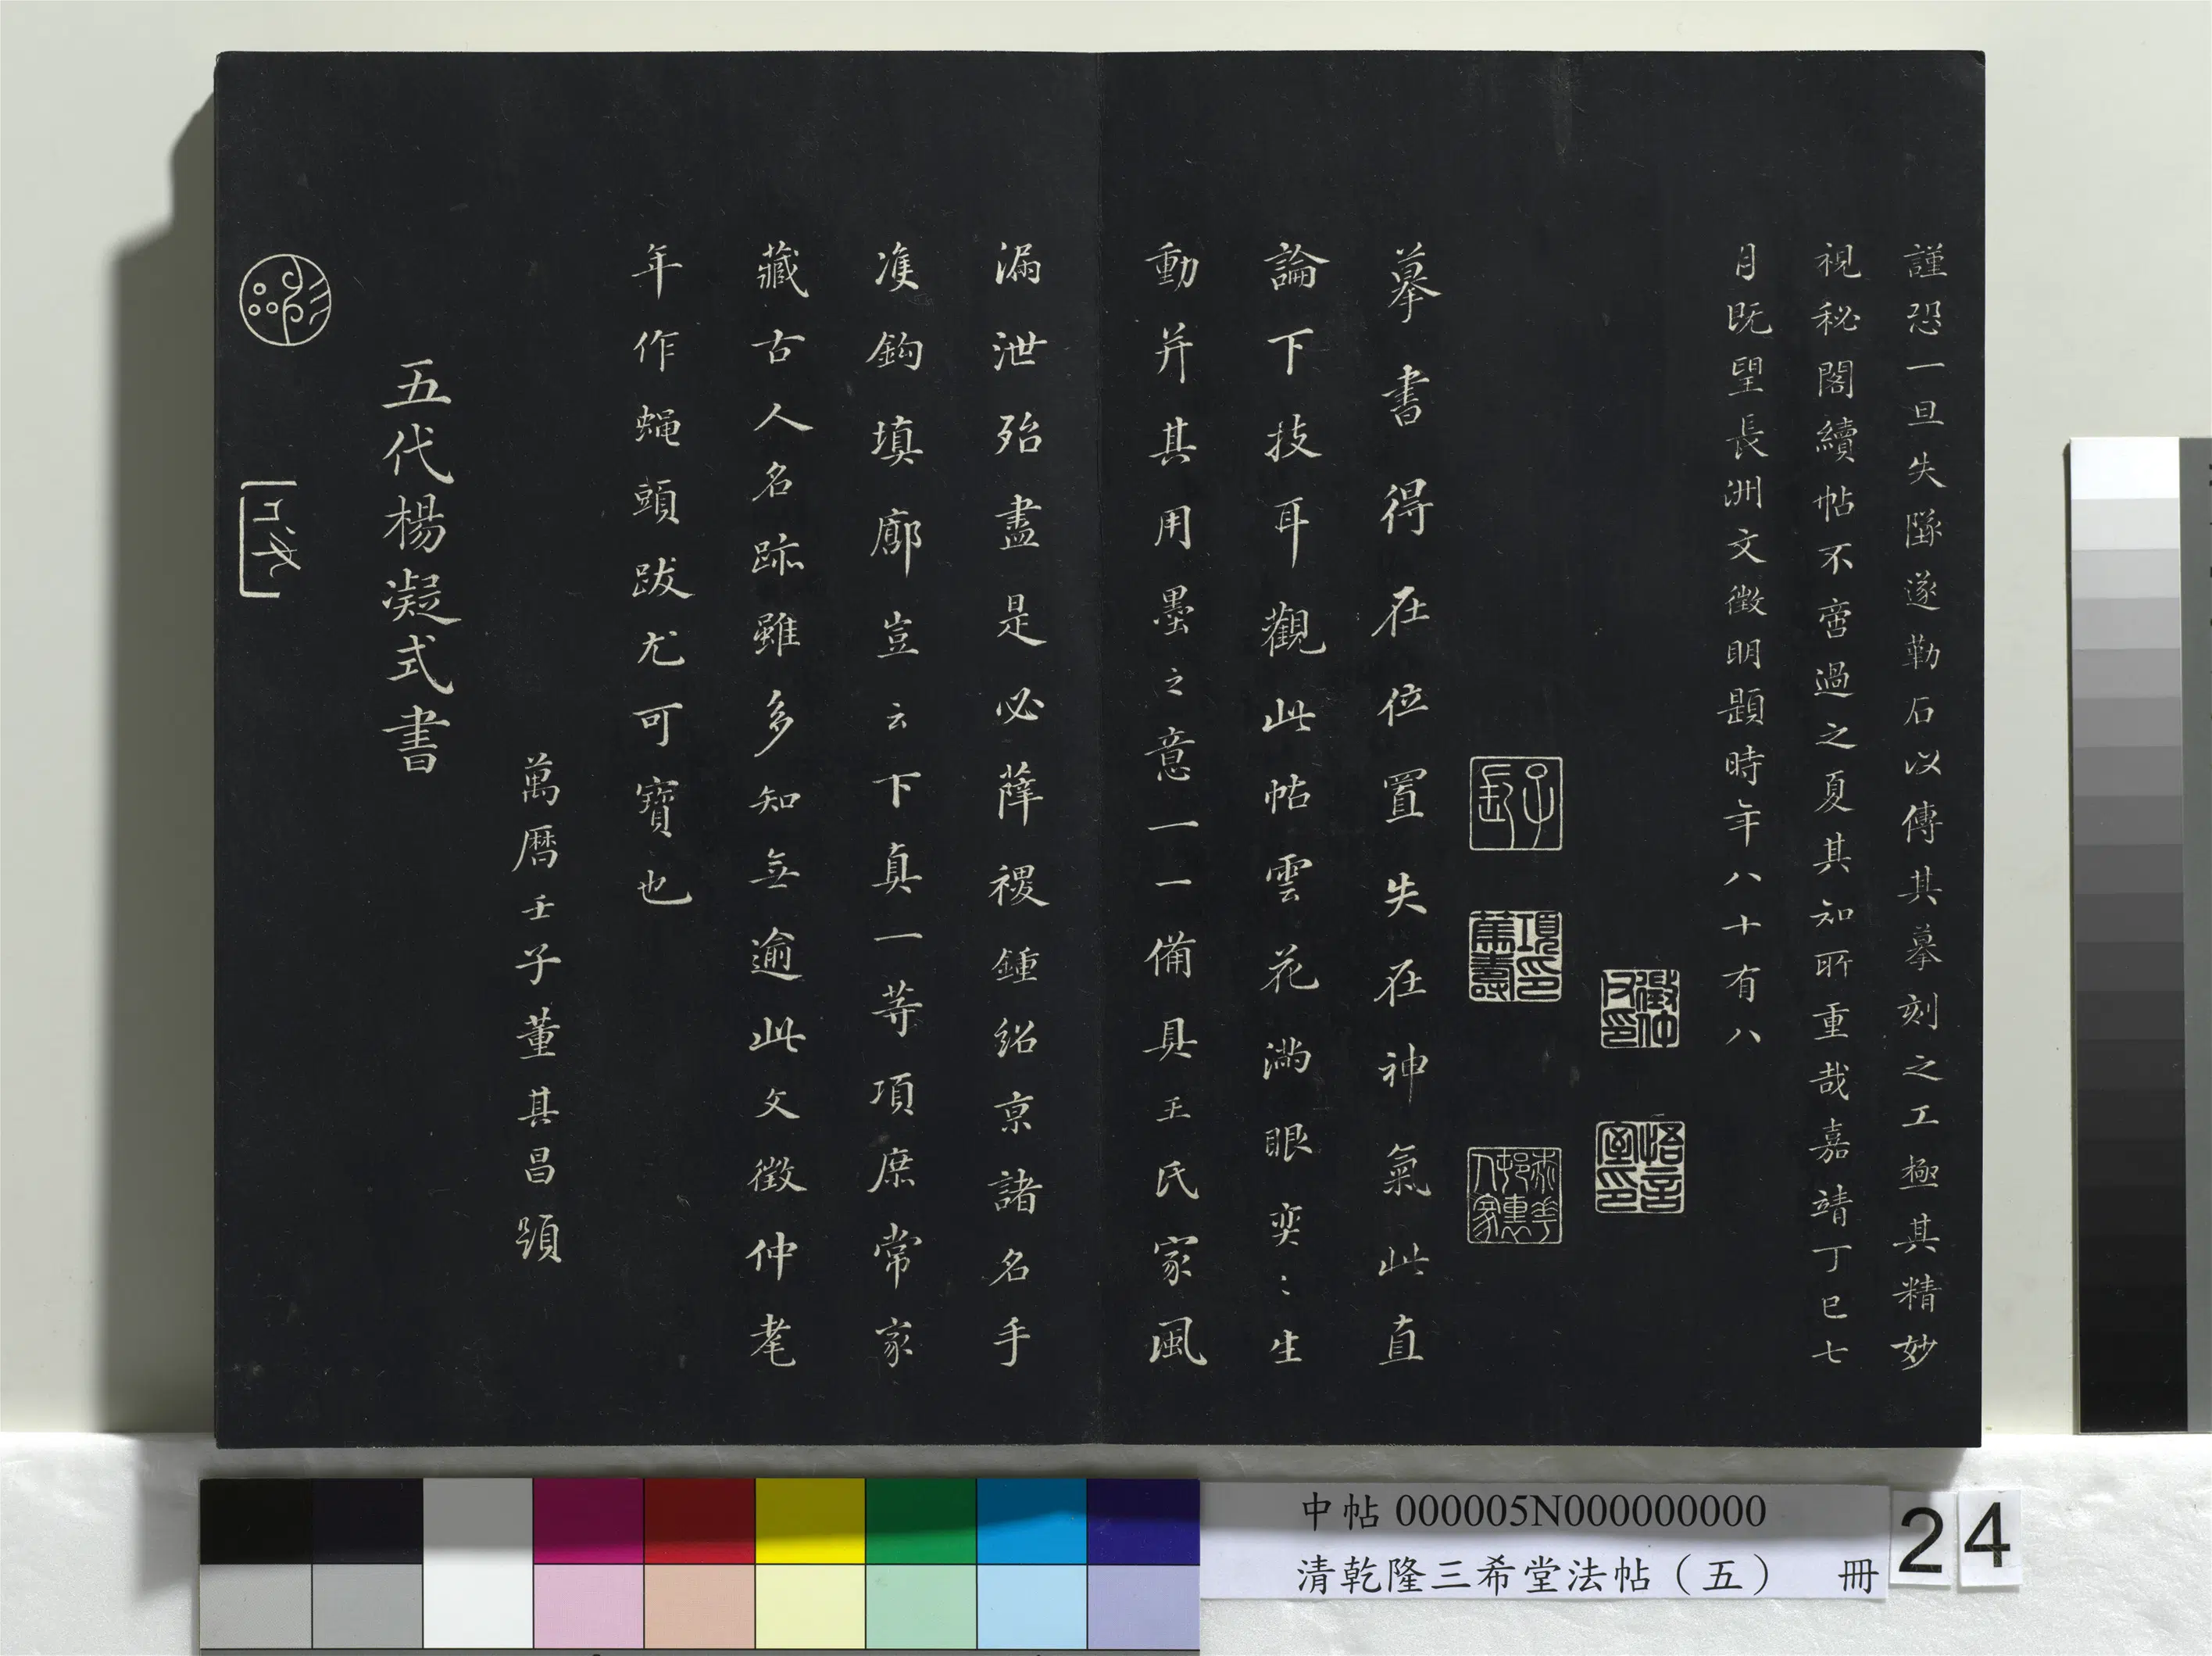 謹恐一旦失墜遂勒石以傳其摹刻之工極其精妙
視秘閣續帖不啻過之夏其知所重哉嘉靖丁巳七
月既望長洲文徵明題時年八十有八
徵仲父印
悟言室印
子長
項篤壽印
摹書得在位置失在神氣此直
論下技耳觀此帖雲花滿眼奕〻生
動并其用墨之意一一備具王氏家風
漏泄殆盡是必薛稷鍾紹京諸名手
准鉤填廓豈云下真一等項庶常家
藏古人名跡雖多知無逾此文徵仲耄
年作蠅頭跋尤可寶也
萬曆壬子董其昌題
五代楊凝式書
中帖 000005N000000000
清乾隆三希堂法帖（五） 冊
24